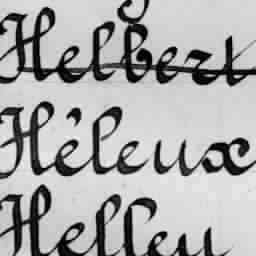 Helbert
Héleux
Helleu